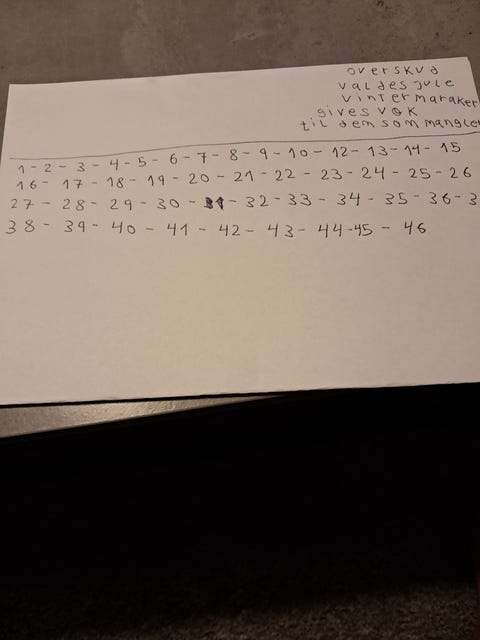 overskud
valdesjule
vintermaraker
gives vok
til dem som mangler
1 - 2 - 3 - 4 - 5 - 6 - 7 - 8 - 9 - 10 - 12 - 13 - 14 - 15
16 - 17 - 18 - 19 - 20 - 21 - 22 - 23 - 24 - 25 - 26
27 - 28 - 29 - 30 - 31 - 32 - 33 - 34 - 35 - 36 - 3
38 - 39 - 40 - 41 - 42 - 43 - 44 - 45 - 46